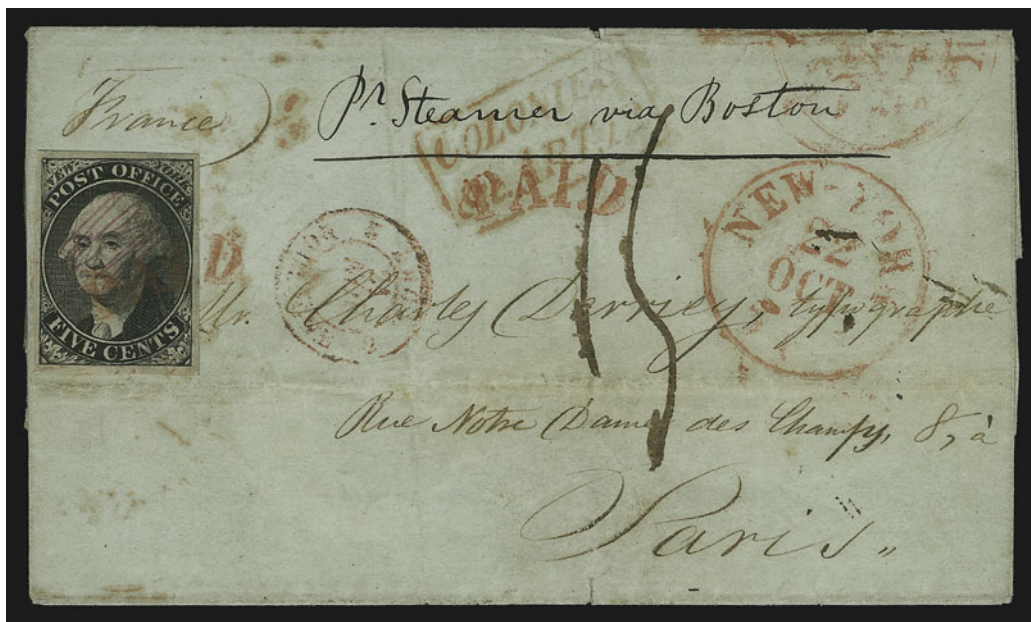 France
Pr. Steamer via Boston
COLONIES
PAID
NEW-YORK
POST OFFICE
FIVE CENTS
22
OCT
D
15
Mr. Charles Derriey, typographe
Rue Notre Dame des Champs, 8, à
Paris.